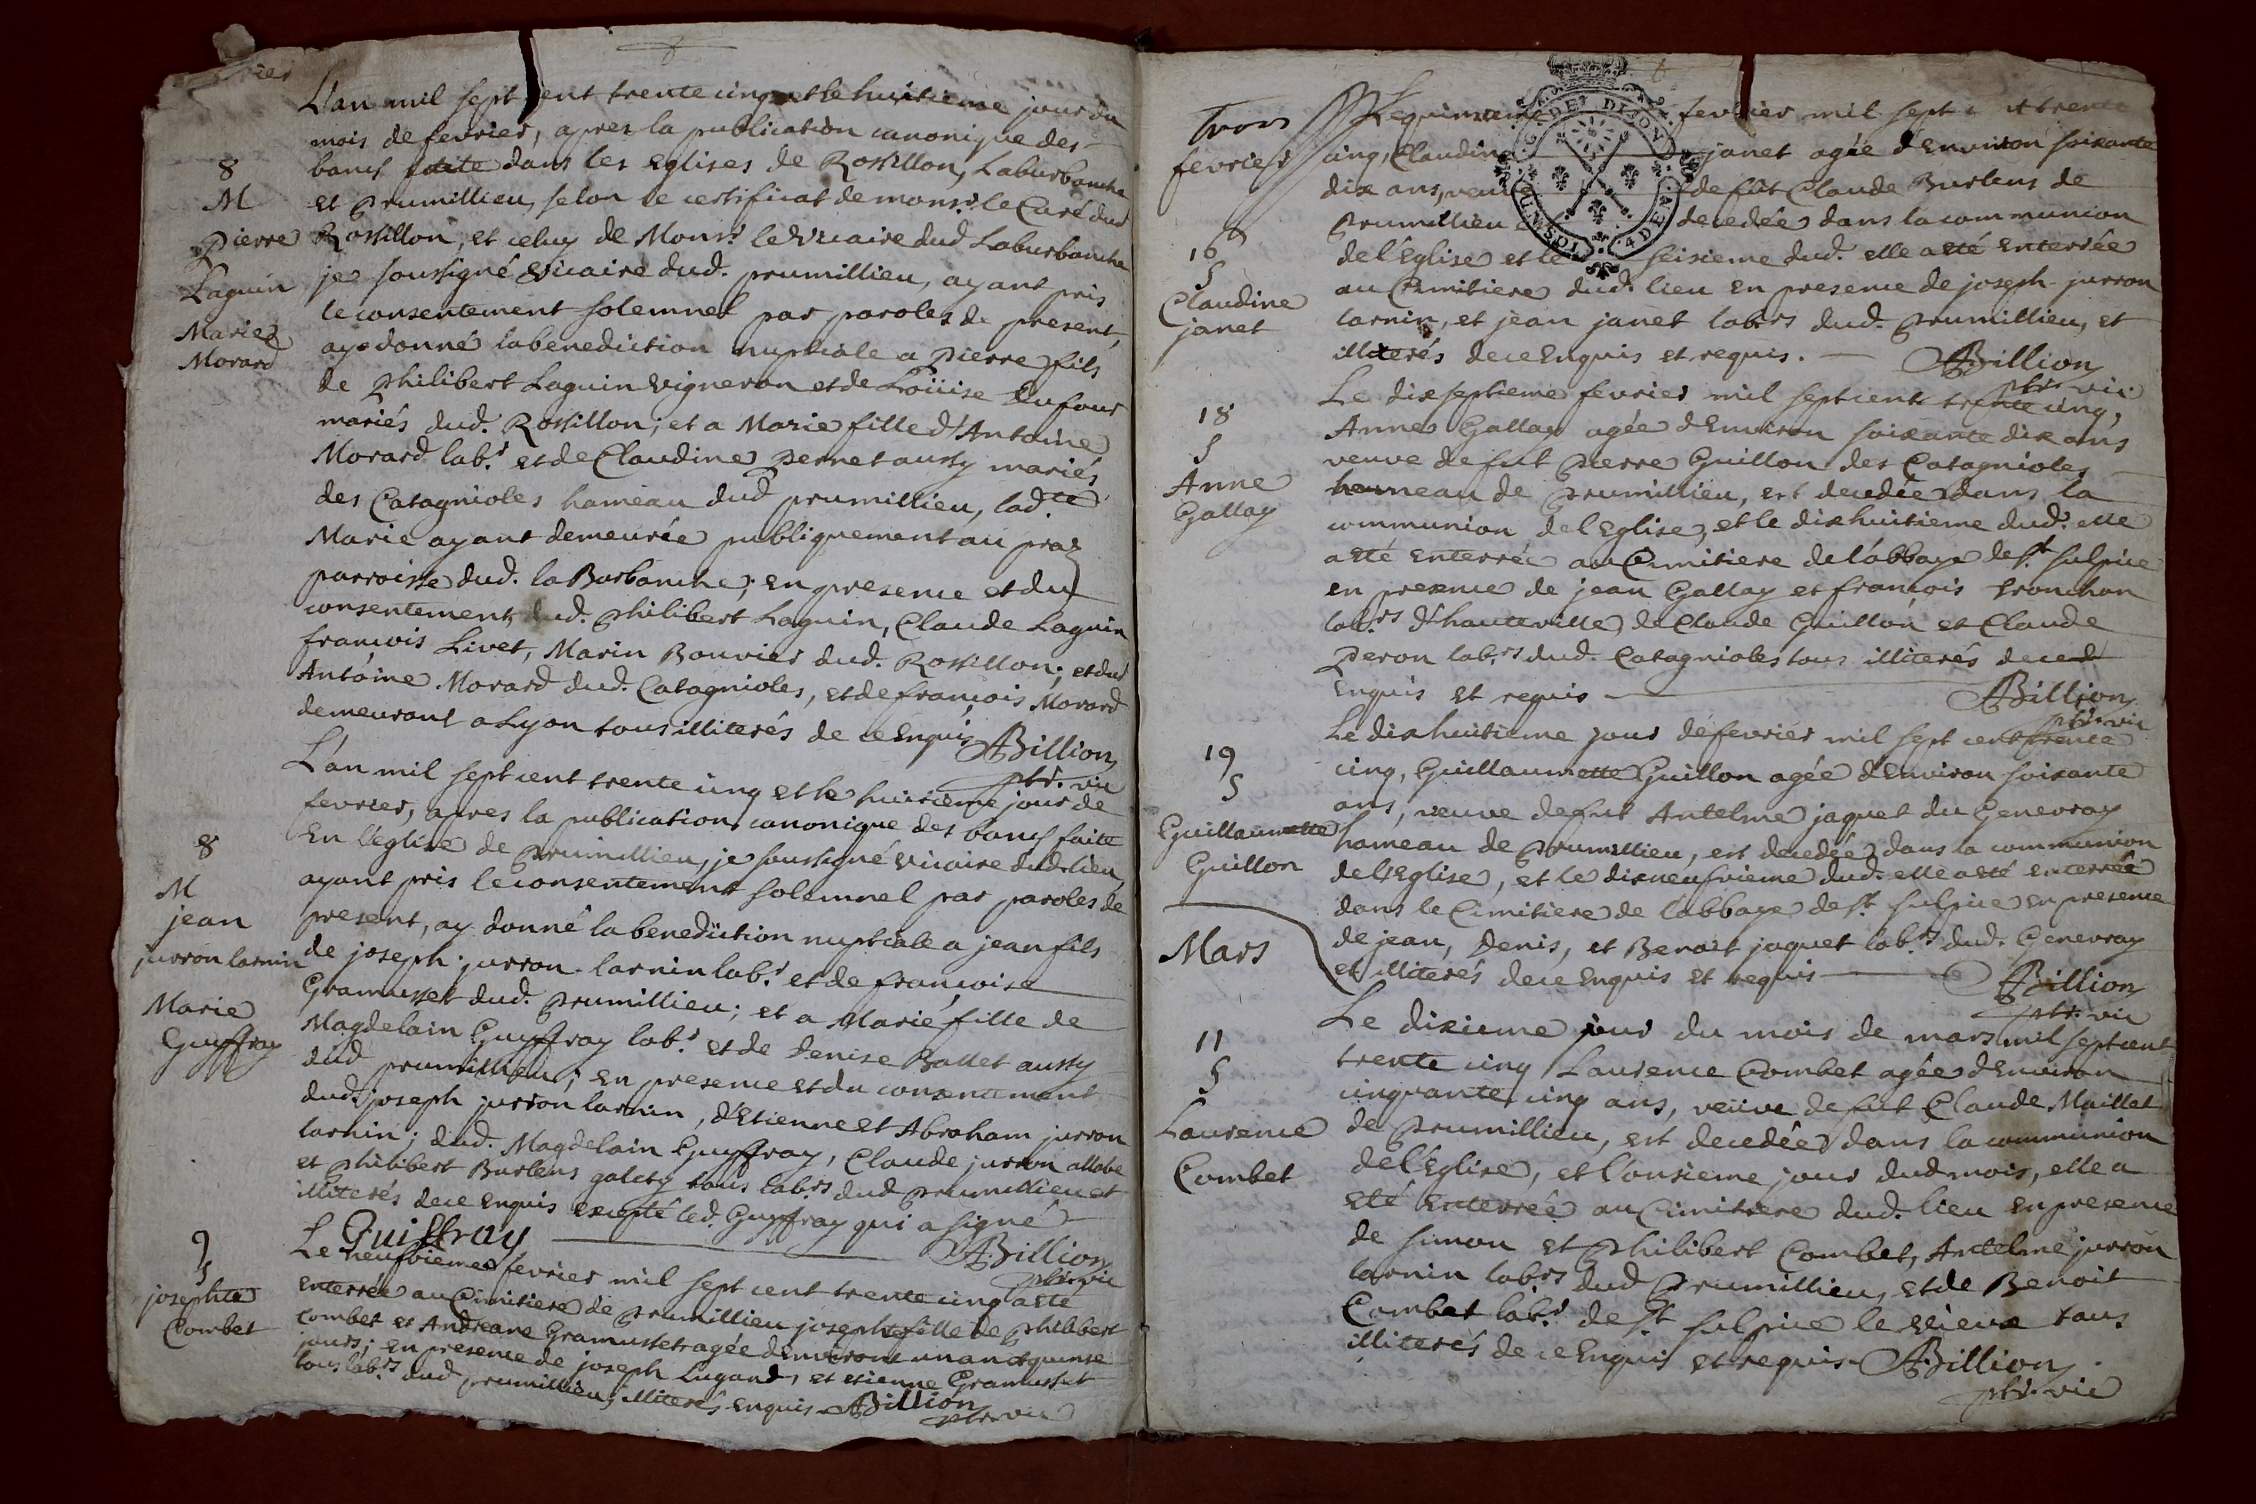 vrier
L'an mil sept cent trente cinq et le huitieme jour du
mois de fevrier, apres la publication canonique des
bancs faite dans les Eglises de Rossillon, Laburbanche
et prumillieu, selon le certificat de monsr. le Curé dud
Rossillon, et celuy de Monsr. le Vicaire dud. Laburbanche
je soussigné Vicaire dud. prumillieu, ayant pris
le consentement solemnel par paroles de present,
ay donné la benediction nuptiale a Pierre fils
de Philibert Laguin vigneron et de Loüise Dufour
mariés dud. Rossillon; et a Marie fille d'Antoine
Morard labr. et de Claudine Pernet aussy mariés
des Catagnioles hameau dud prumillieu, lad.te
Marie ayant demeurée publiquement au praz
parroisse dud. la Burbanche; en presence et du
consentement dud. Philibert Laguin, Claude Laguin
francois Livet, Marin Bouvier dud. Rossillon; et dud
Antoine Morard dud. Catagnioles, et de francois Morard
demeurant a Lyon tous illiterés de ce Enquis
ABillion
ptr. vic
8
M
Pierre
Laguin
Marie
Morard
L'an mil sept cent trente cinq et le huitieme jour de
fevrier, apres la publication canonique des bancs faite
En l'eglise de prumillieu, je soussigné vicaire dud. lieu
ayant pris le consentement solemnel par paroles de
present, ay donné la benediction nuptiale a jean fils
de joseph jurron larnin labr. et de francoise
Gramusset dud. prumillieu; et a Marie fille de
Magdelain Guyffray labr. et de Denise Ballet aussy
dud prumillieu; en presence et du consentement
dud. joseph jurron larnin, d'Etienne et Abraham jurron
larnin; dud. Magdelain Guyffray, Claude jurron
et philibert Burlens galety tous labrs. dud prumillieu et
illiterés de ce enquis excepté led. Guyffray qui a signé
L Guiffray
ABillion
ptr. vic
8
M
jean
jurron larnin
Marie
Guyffray
Le neufvieme fevrier mil sept cent trente cinq a eté
enterrée au Cimitiere de prumillieu josephte fille de Philibert
Combet et Andreane Gramusset agée d'environ un an et quinse
jours; en presence de joseph Lugand, et etienne Gramusset
tous labrs. dud prumillieu, illiterés enquis
ABillion
ptr. vic
9
S
josephte
Combet
trois
fevrier
Le quinsieme fevrier mil sept trente
cinq, Claudine janet agée d'Environ soixante
dix ans, veuve de fut Claude Burlens de
prumillieu decedée dans la communion
de l'Eglise et le seisieme dud. elle a eté enterrée
au Cimitiere dud. lieu en presence de joseph jurron
larnin, et jean janet labrs. dud. prumillieu, et
illiterés de ce Enquis et requis.
ABillion
ptr. vic.
16
S
Claudine
janet
G. DE DIJON
4 DE
Le dixseptieme fevrier mil sept cent trente cinq,
Anne Gallay agée d'Environ soixante dix ans
veuve de fut Pierre Guillon des Catagnioles
hameau de prumillieu, est decedée dans la
communion de l'Eglise, et le dixhuitieme dud. elle
a eté enterrée au Cimitiere de l'abbaye de st. sulpice
en presence de jean Gallay et francois Tronchon
labrs. d'hauteville de Claude Guillon et Claude
Peron labrs. dud. Catagnioles tous illiterés de ce
Enquis et requis
ABillion
ptr. vic
18
S
Anne
Gallay
Le dixhuitieme jour de fevrier mil sept cent trente
cinq, Guillaumette Guillon agée d'Environ soixante
ans, veuve de fut Antelme jaquet du Genevray
hameau de prumillieu, est decedée dans la communion
de l'Eglise, et le dixneufvieme dud. elle a eté enterrée
dans le Cimitiere de l'abbaye de st. sulpice en presence
de jean, Denis, et Benoit jaquet labrs. dud. Genevray
et illiterés de ce enquis et requis
ABillion
ptr. vic
19
S
Guillaumette
Guillon
Mars
Le dixieme jour du mois de mars mil sept cent
trente cinq Laurence Combet agée d'Environ
cinquante cinq ans, veüve de fut Claude Maillet
de prumillieu, est decedée dans la communion
de l'Eglise, et l'onsieme jour dud mois, elle a
eté enterrée au Cimitiere dud. lieu en presence
de simon et philibert Combet, Antelme jurron
larnin labrs. dud prumillieu, et de Benoit
Combet labr. de st. sulpice le vieux tous
illiterés de ce Enquis et requis
ABillion
ptr. vic
11
S
Laurence
Combet